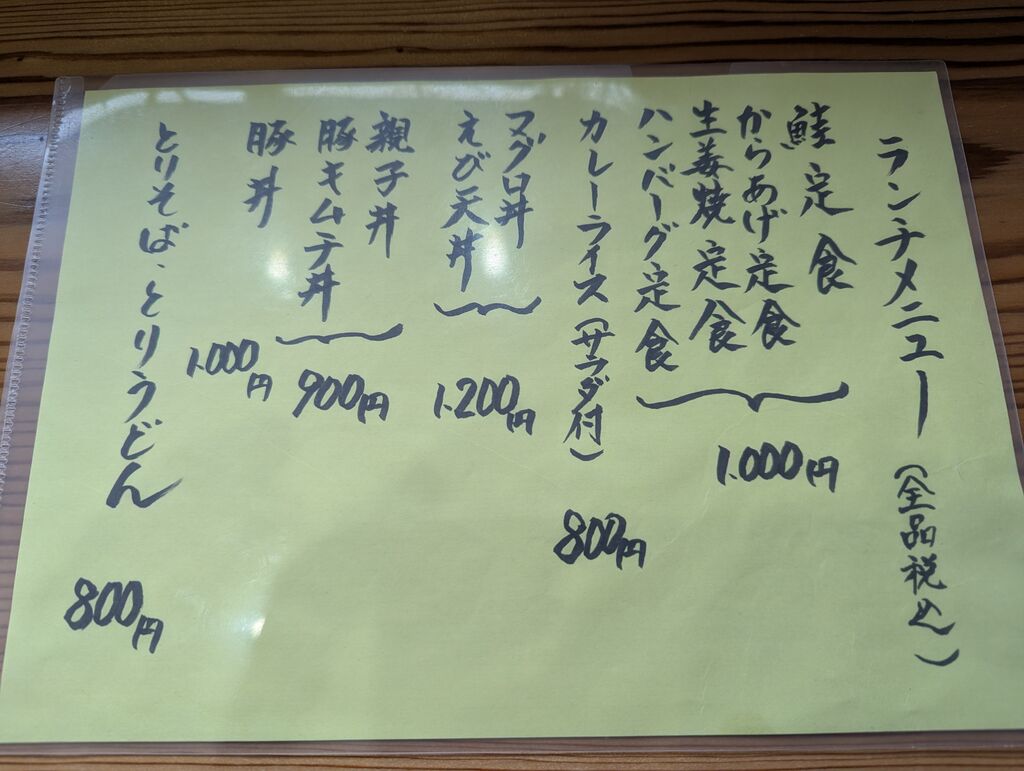 ランチメニュー (全品税込)
鮭定食
からあげ定食
生姜焼定食
ハンバーグ定食
1.000円
カレーライス(サラダ付)
800円
マグロ丼
えび天丼
1.200円
親子丼
豚キムチ丼
900円
豚丼
1.000円
とりそば、とりうどん
800円